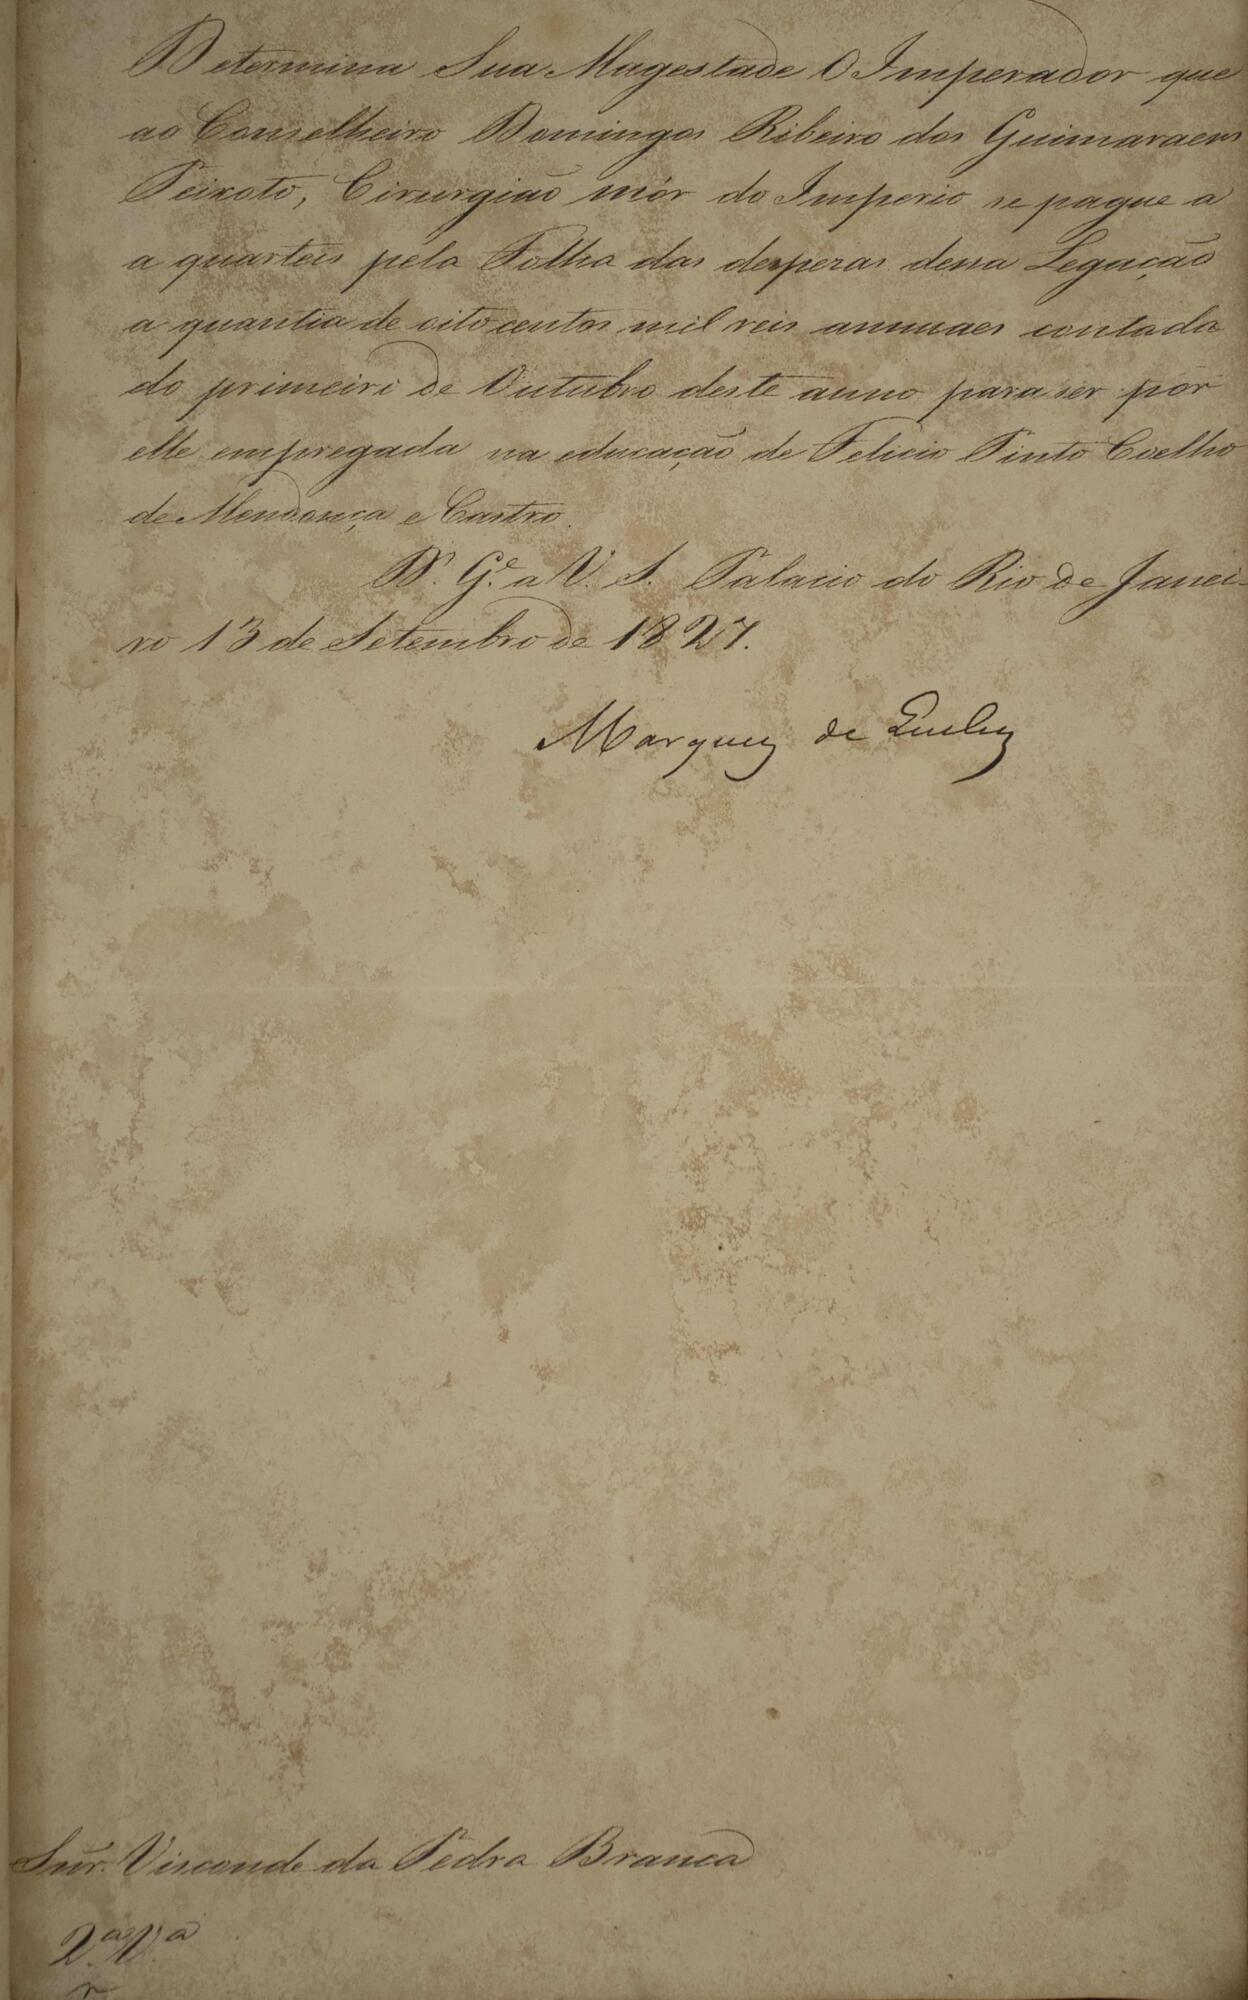 Determina Sua Magestade O Imperador que
ao Conselheiro Domingos Ribeiro dos Guimaraens
Peixoto, Cirurgião mór do Imperio se pague a
a quarteis pela Folha das despezas dessa Legação
a quantia de oito centos mil reis annuaes contada
do primeiro de Outubro deste anno para ser por
elle empregada na educação de Felicio Pinto Coelho
de Mendonça e Castro.
Ds. Ge. a V. S. Palacio do Rio de Janei-
ro 13 de Setembro de 1827.
Marquez de Queluz
Snr. Visconde da Pedra Branca
2.ª V.ª